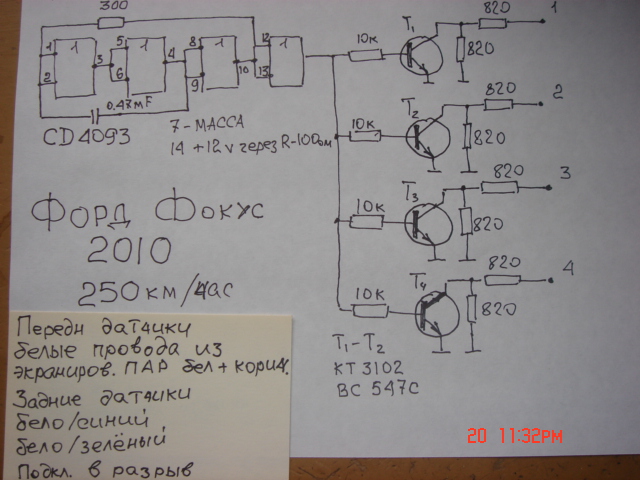 300
T1
820
1
10к
820
1 1 5 1 8 1 12 1
2 3 6 4 9 10 13
0.47мF
CD4093
7-МАССА
14 +12v через R-100ом
T2
820
2
10к
820
T3
820
3
10к
820
T4
820
4
10к
820
Форд Фокус
2010
250км/час
T1-T2
КТ3102
BC 547C
Передн датчики
белые провода из
экраниров. ПАР бел+корич.
Задние датчики
бело/синий
бело/зелёный
Подкл. в разрыв
20 11:32PM